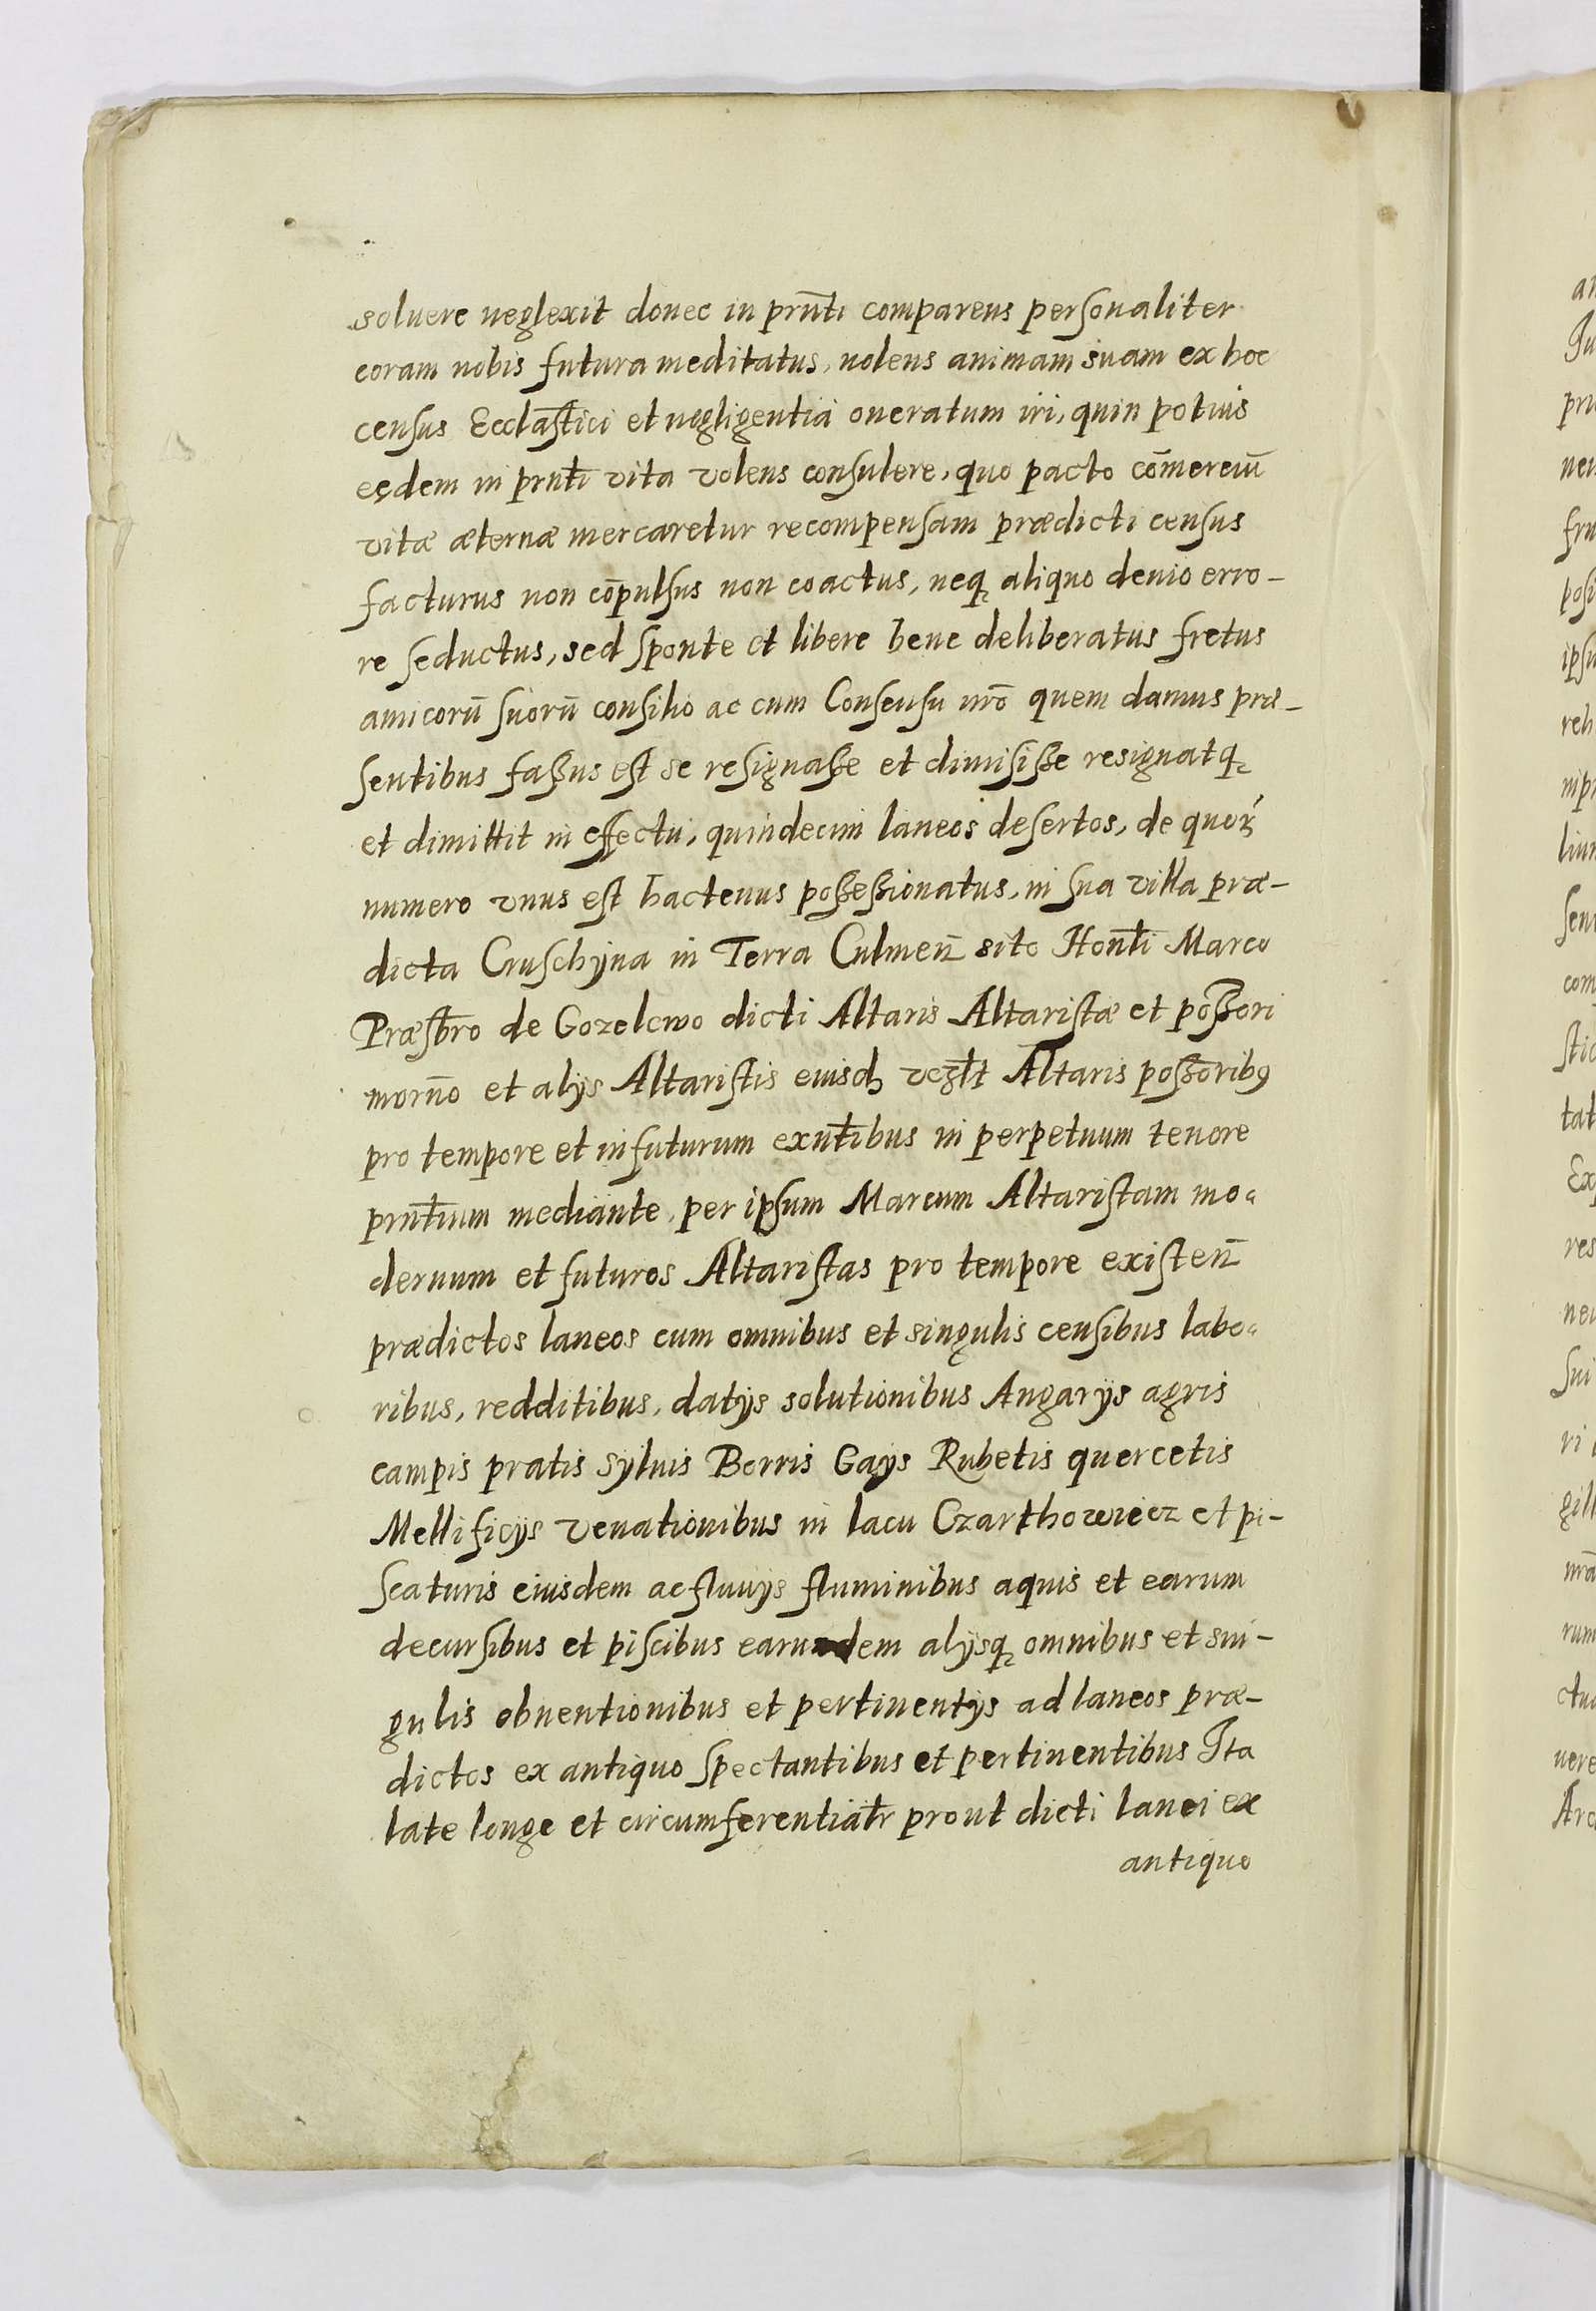 soluere neglexit donec in prñti comparens personaliter
coram nobis futura meditatus, nolens animam suam ex hoc
census Ecclãstici et negligentia oneratum iri, quin potius
eędem in prnt̃i vita volens consulere, quo pacto cõmerciũ
vitæ æternæ mercaretur recompensam prædicti census
facturus non cõpulsus non coactus, neq̨ aliquo deuio erro-
re seductus, sed sponte et libere bene deliberatus fretus
amicorũ suorũ consilio ac cum Consensu nrõ quem damus præ-
sentibus faßus est se resignaße et dimisiße resignatq̨
et dimittit in effectu, quindecim laneos desertos, de quoꝝ
numero vnus est hactenus poßeßionatus, in sua villa præ-
dicta Cruschÿna in Terra Culmeñ sito Hont̃i Marco
Præsb̃ro de Gozelewo dicti Altaris Altaristæ et poßori
morño et alÿs Altaristis eiusd̨ Altaris poßoribꝯ
pro tempore et in futurum exnt̃ibus in perpetuum tenore
prnt̃ium mediante, per ipsum Marcum Altaristam mo-
dernum et futuros Altaristas pro tempore existeñ
prædictos laneos cum omnibus et singulis censibus labo-
ribus, redditibus, datÿs solutionibus Angarÿs agris
campis pratis syluis Borris Gaÿs Rubetis quercetis
Mellificÿs venationibus in lacu Czarthowiecz et pi-
scaturis eiusdem ac fluuÿs fluminibus aquis et earum
decursibus et piscibus earundem alÿsq̨ omnibus et sin-
gulis obuentionibus et pertinentÿs ad laneos præ-
dictos ex antiquo spectantibus et pertinentibus Ita
late longe et circumferentiat̃r prout dicti lanei ex
antiquo